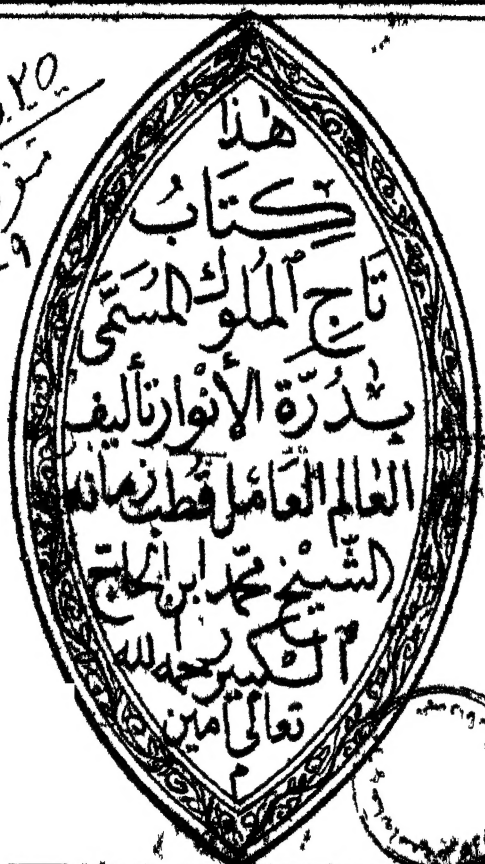 هٰذا
كِتَابُ
تَاجِ ٱلمُلُوكِ المُسَمَّى
بِدُرَّةِ الأَنْوَارِ تأليف
العٰالم العَامل قُطب زمانه
الشَّيْخ محمّد ابن الحاجّ
الكبير رحمه الله
تعالى امين
م
٢٥